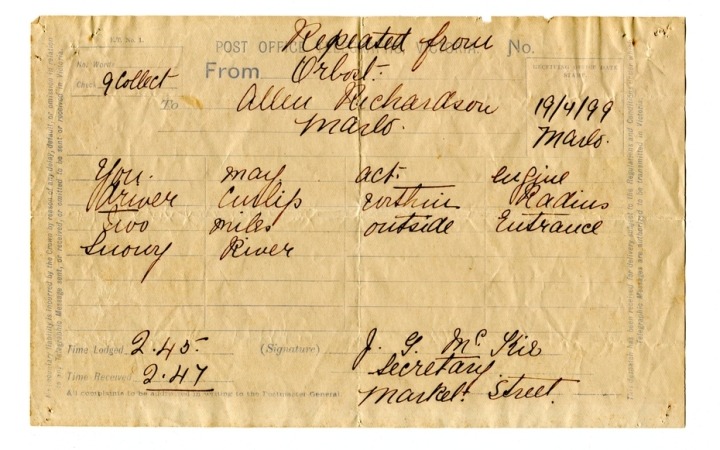 E.T. No. 1.
Repeated from
POST OFFICE VICTORIA. No.
No. Words
Check 9 Collect
From Orbost.
To Allen Richardson
Marlo.
RECEIVING OFFICE DATE STAMP.
19/4/99
Marlo.
You may act engine
driver Cutlip within Radius
Two miles outside Entrance
Snowy River
Time Lodged 2.45.
(Signature) J. G. McKie
Secretary
Time Received 2.47
Market Street.
All complaints to be addressed in writing to the Postmaster General